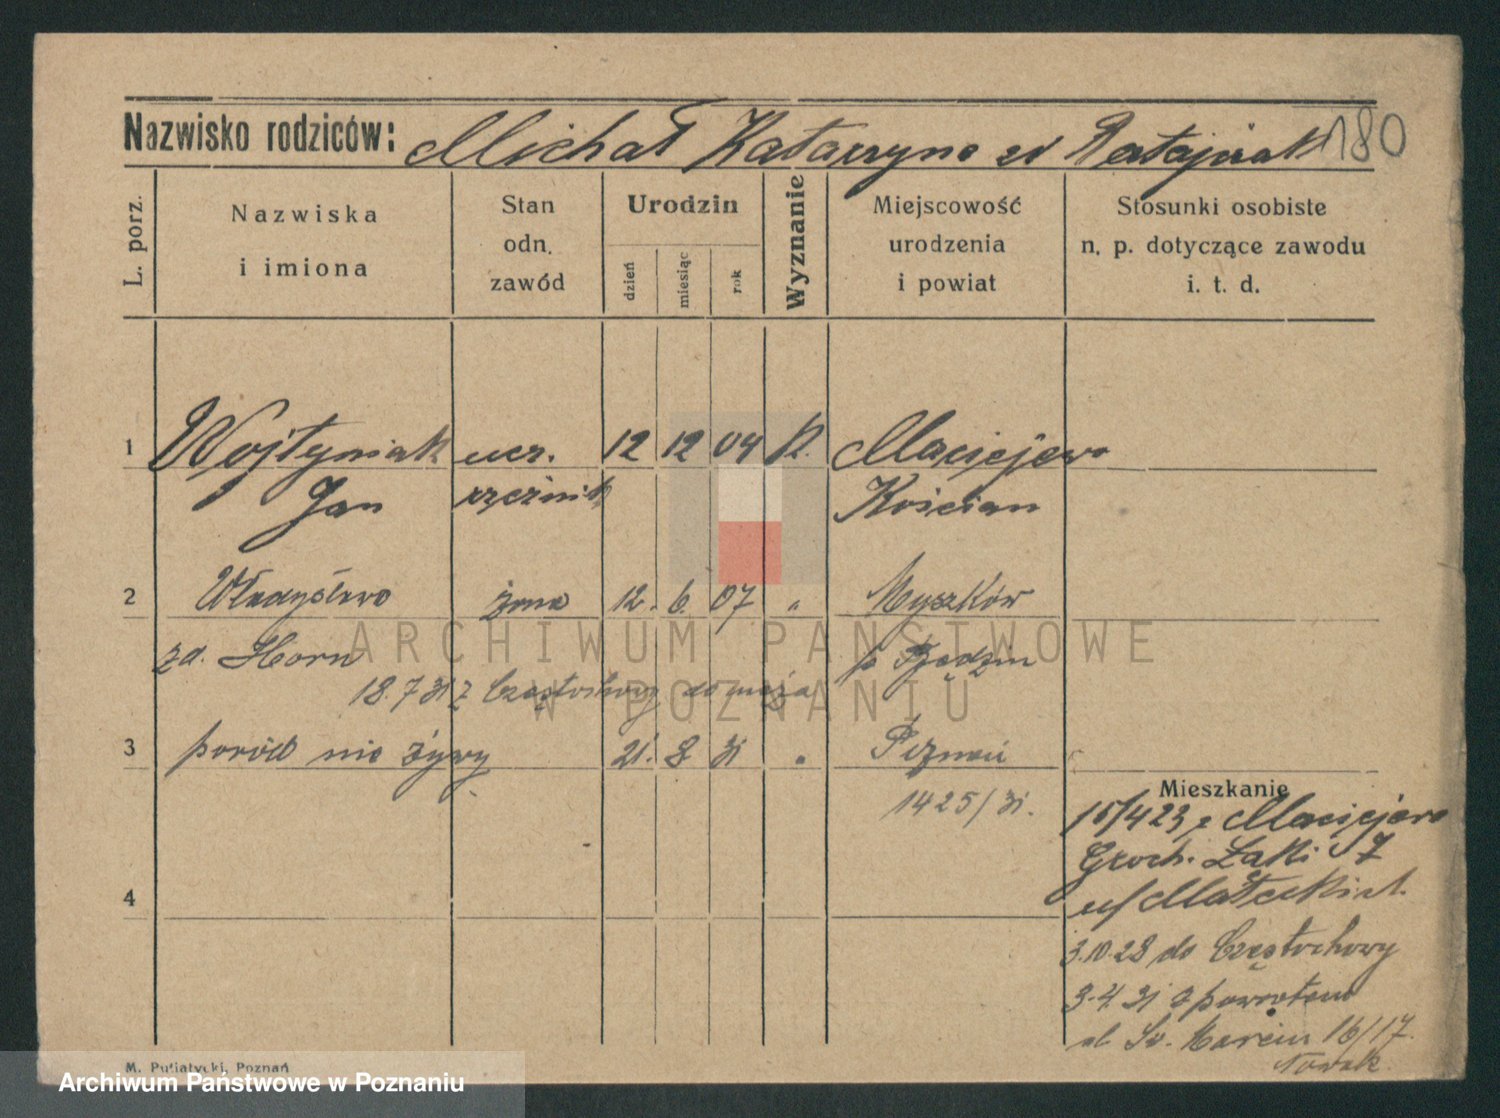 180
Nazwisko rodziców: Michał Katarzyna zd Ratajczak
L. porz.
Nazwiska
i imiona
Stan
odn.
zawód
Urodzin
dzień
miesiąc
rok
Wyznanie
Miejscowość
urodzenia
i powiat
Stosunki osobiste
n. p. dotyczące zawodu
i. t. d.
1 Wojtyniak ucz. 12 12 04 k. Maciejewo
Jan rzeźnik Kościan
2 Władysława żona 12. 6. 07 " Myszków
zd. Horn p Będzin
18.7 31 z Częstochowy do męża
3 poród nie żywy 21. 8 31 " Poznań
1425/31.
Mieszkanie
15/4 23 z Maciejewo
Groch. Łąki 7
u/ Małecki
4
3.10.28 do Częstochowy
3.4.31 z powrotem
ul Św. Marcin 16/17.
Nowak
M. Putiatycki, Poznań
ARCHIWUM PAŃSTWOWE
W POZNANIU
Archiwum Państwowe w Poznaniu